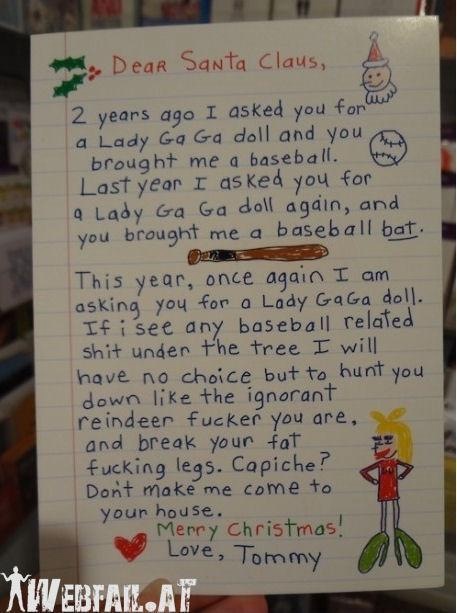 Dear Santa Claus,
2 years ago I asked you for
a Lady Ga Ga doll and you
brought me a baseball.
Last year I asked you for
a Lady Ga Ga doll again, and
you brought me a baseball bat.
This year, once again I am
asking you for a Lady GaGa doll.
If i see any baseball related
shit under the tree I will
have no choice but to hunt you
down like the ignorant
reindeer fucker you are,
and break your fat
fucking legs. Capiche?
Don't make me come to
your house.
Merry Christmas!
Love, Tommy
WEBFAIL.AT